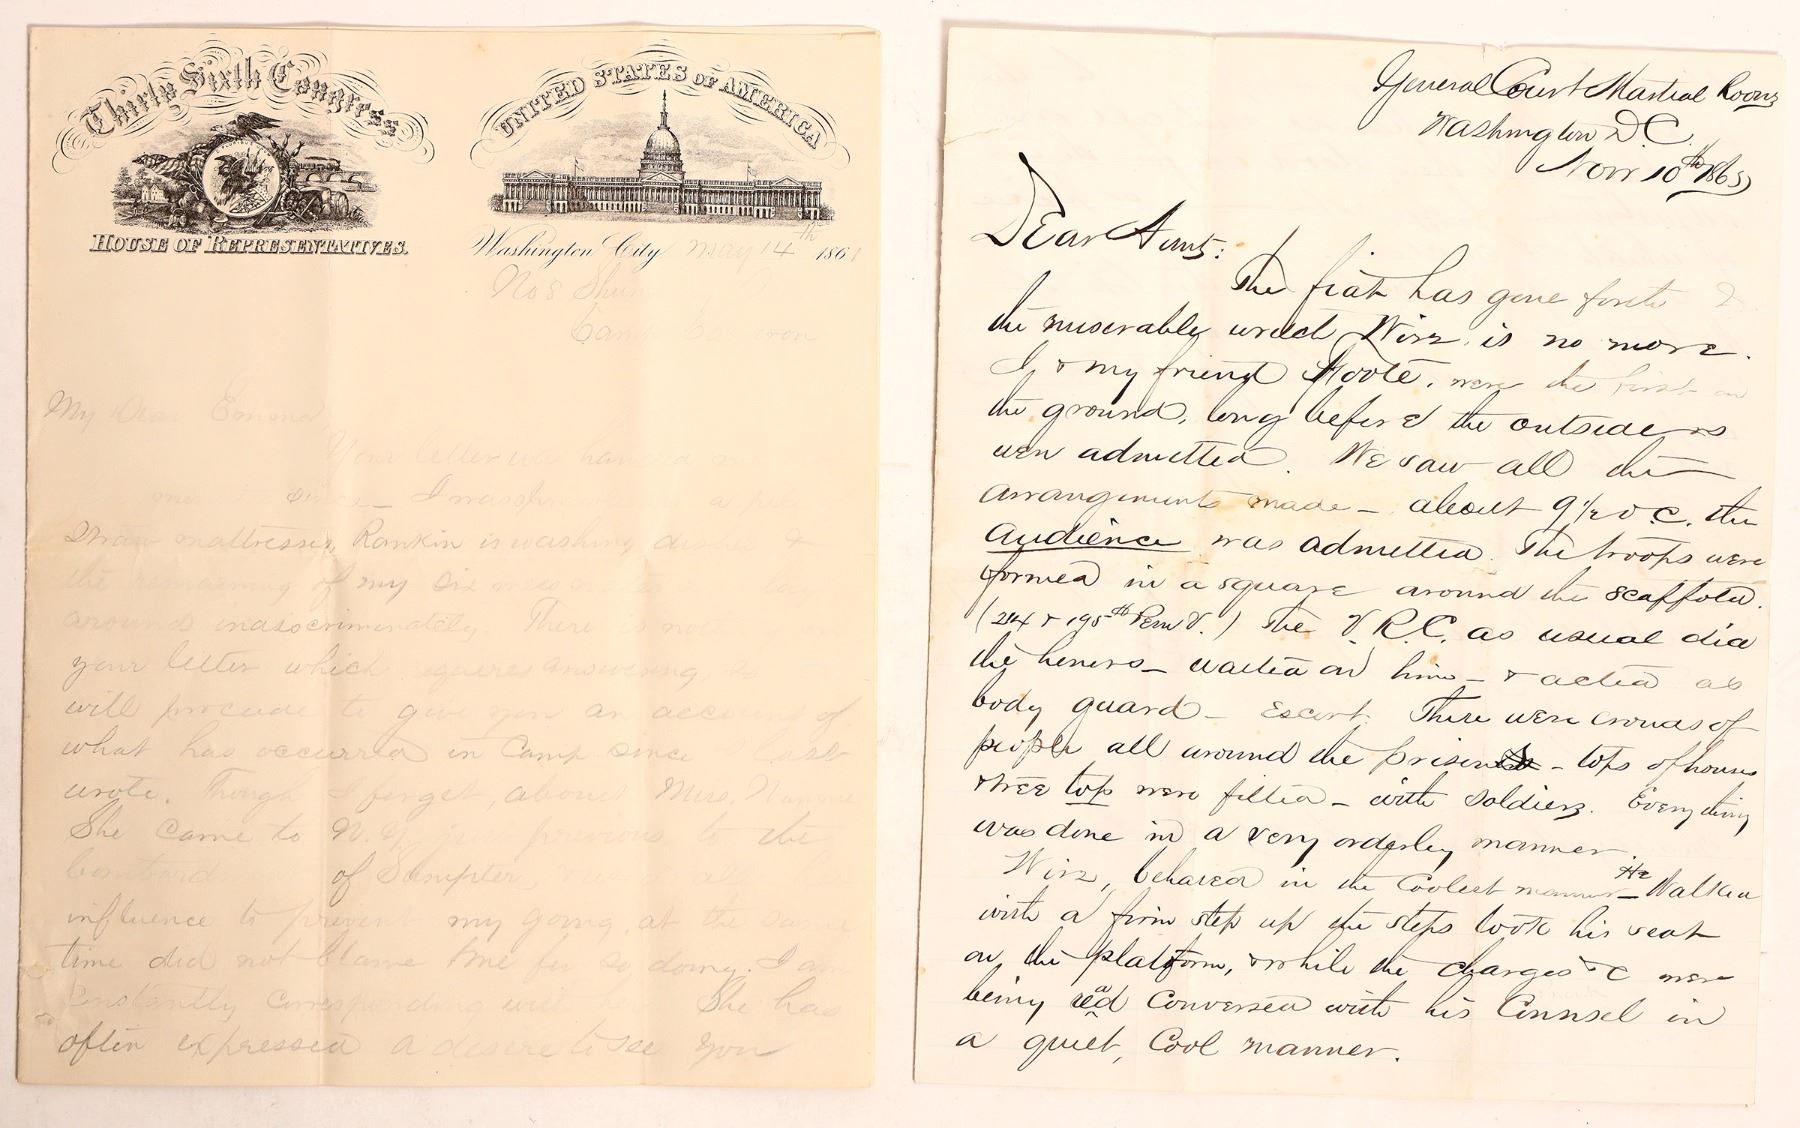 Thirty Sixth Congress
HOUSE OF REPRESENTATIVES.
UNITED STATES OF AMERICA
Washington City May 14th 1861
No 8
Camp
My Dear Emma
Your letter was
since _ I was
straw mattresses, Rankin is washing dishes &
the remaining of my six
around indiscriminately. There is not
your letter which requires answering
will proceed to give you an account of
what has occurred in Camp since last
wrote. Though I forget, about Miss
She came to N.Y. just previous to the
of Sumpter,
influence to prevent my going, at the same
time did not blame me for so doing. I am
Constantly corresponding with her She has
often expressed a desire to see you
General Court Martial Rooms
Washington D.C.
Nov 10th 1865
Dear Aunt:
The fiat has gone forth &
the miserable wretch Wirz is no more.
I & my friend Foote, were the first on
the ground, long before the outsiders
were admitted. We saw all the
arrangements made _ about 9 1/2 o.c. the
Audience was admitted. The troops were
formed in a square around the scaffold.
(214 & 195th Penn V.) The V.R.C. as usual did
the honors _ waited on him _ & acted as
body guard _ Escort. There were crowds of
people all around the prison _ tops of houses
& tree tops were filled _ with soldiers. Every thing
was done in a very orderly manner
Wirz, behaved in the Coolest manner _ He Walked
with a firm step up the steps took his seat
on the platform, & while the charges &c were
being read Conversed with his Counsel in
a quiet, Cool manner.